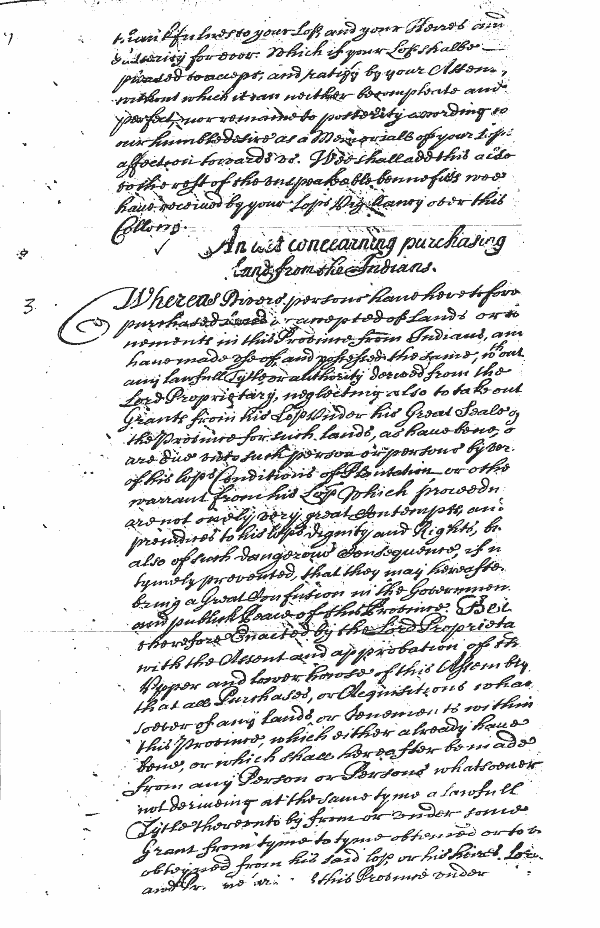 thankfulness to your Lopp, and your Heires and
posterity for ever. Which if your Lopp shall be
pleased to accept, and ratify by your Assent,
without which it can neither be complete and
perfect, nor remaine to posterity according to
our humble desire as a Memoriall of your Lopps
affection towards us. Wee shall add this also
to the rest of the unspeakable bennefits wee
have received by your Lopps Vigilancy over this
Collony.
An act concerning purchasing
land from the Indians.
3
Whereas Divers persons have heretofore
purchased or accepted of Lands or te
nements in this Province from Indians, and
have made use of, and possessed the same, wthout
any lawfull Tytle or authority derived from the
Lord Proprietary, neglecting also to take out
Grants from his Lopp Under his Great Seale of
the Province for such lands, as have bene, o
are due unto such person or persons by ver
of his lopps Conditions of Plantation or othe
warrant from his Lopp Which proceedin
are not onely very great Contempts, and
prejudices to his lopps dignity and Rights, bu
also of such dangerous Consequence, if n
tymely prevented, that they may hereafter
bring a Great Confution in the Governmen
and publick Peace of this Province. Be it
therefore Enacted by the Lord Proprieta
with the Assent and approbation of the
Upper and lower howse of this Assembly
that all Purchases, or Acquisitions what
soever of any lands or Tenements within
this Province, which either already have
bene, or which shall hereafter be made
from any Person or Persons whatsoever
not deriveing at the same tyme a lawfull
Tytle thereunto by from or under some
Grant from tyme to tyme obteined or to be
obteyned from his said lopp or his heires Lor
and this Province under